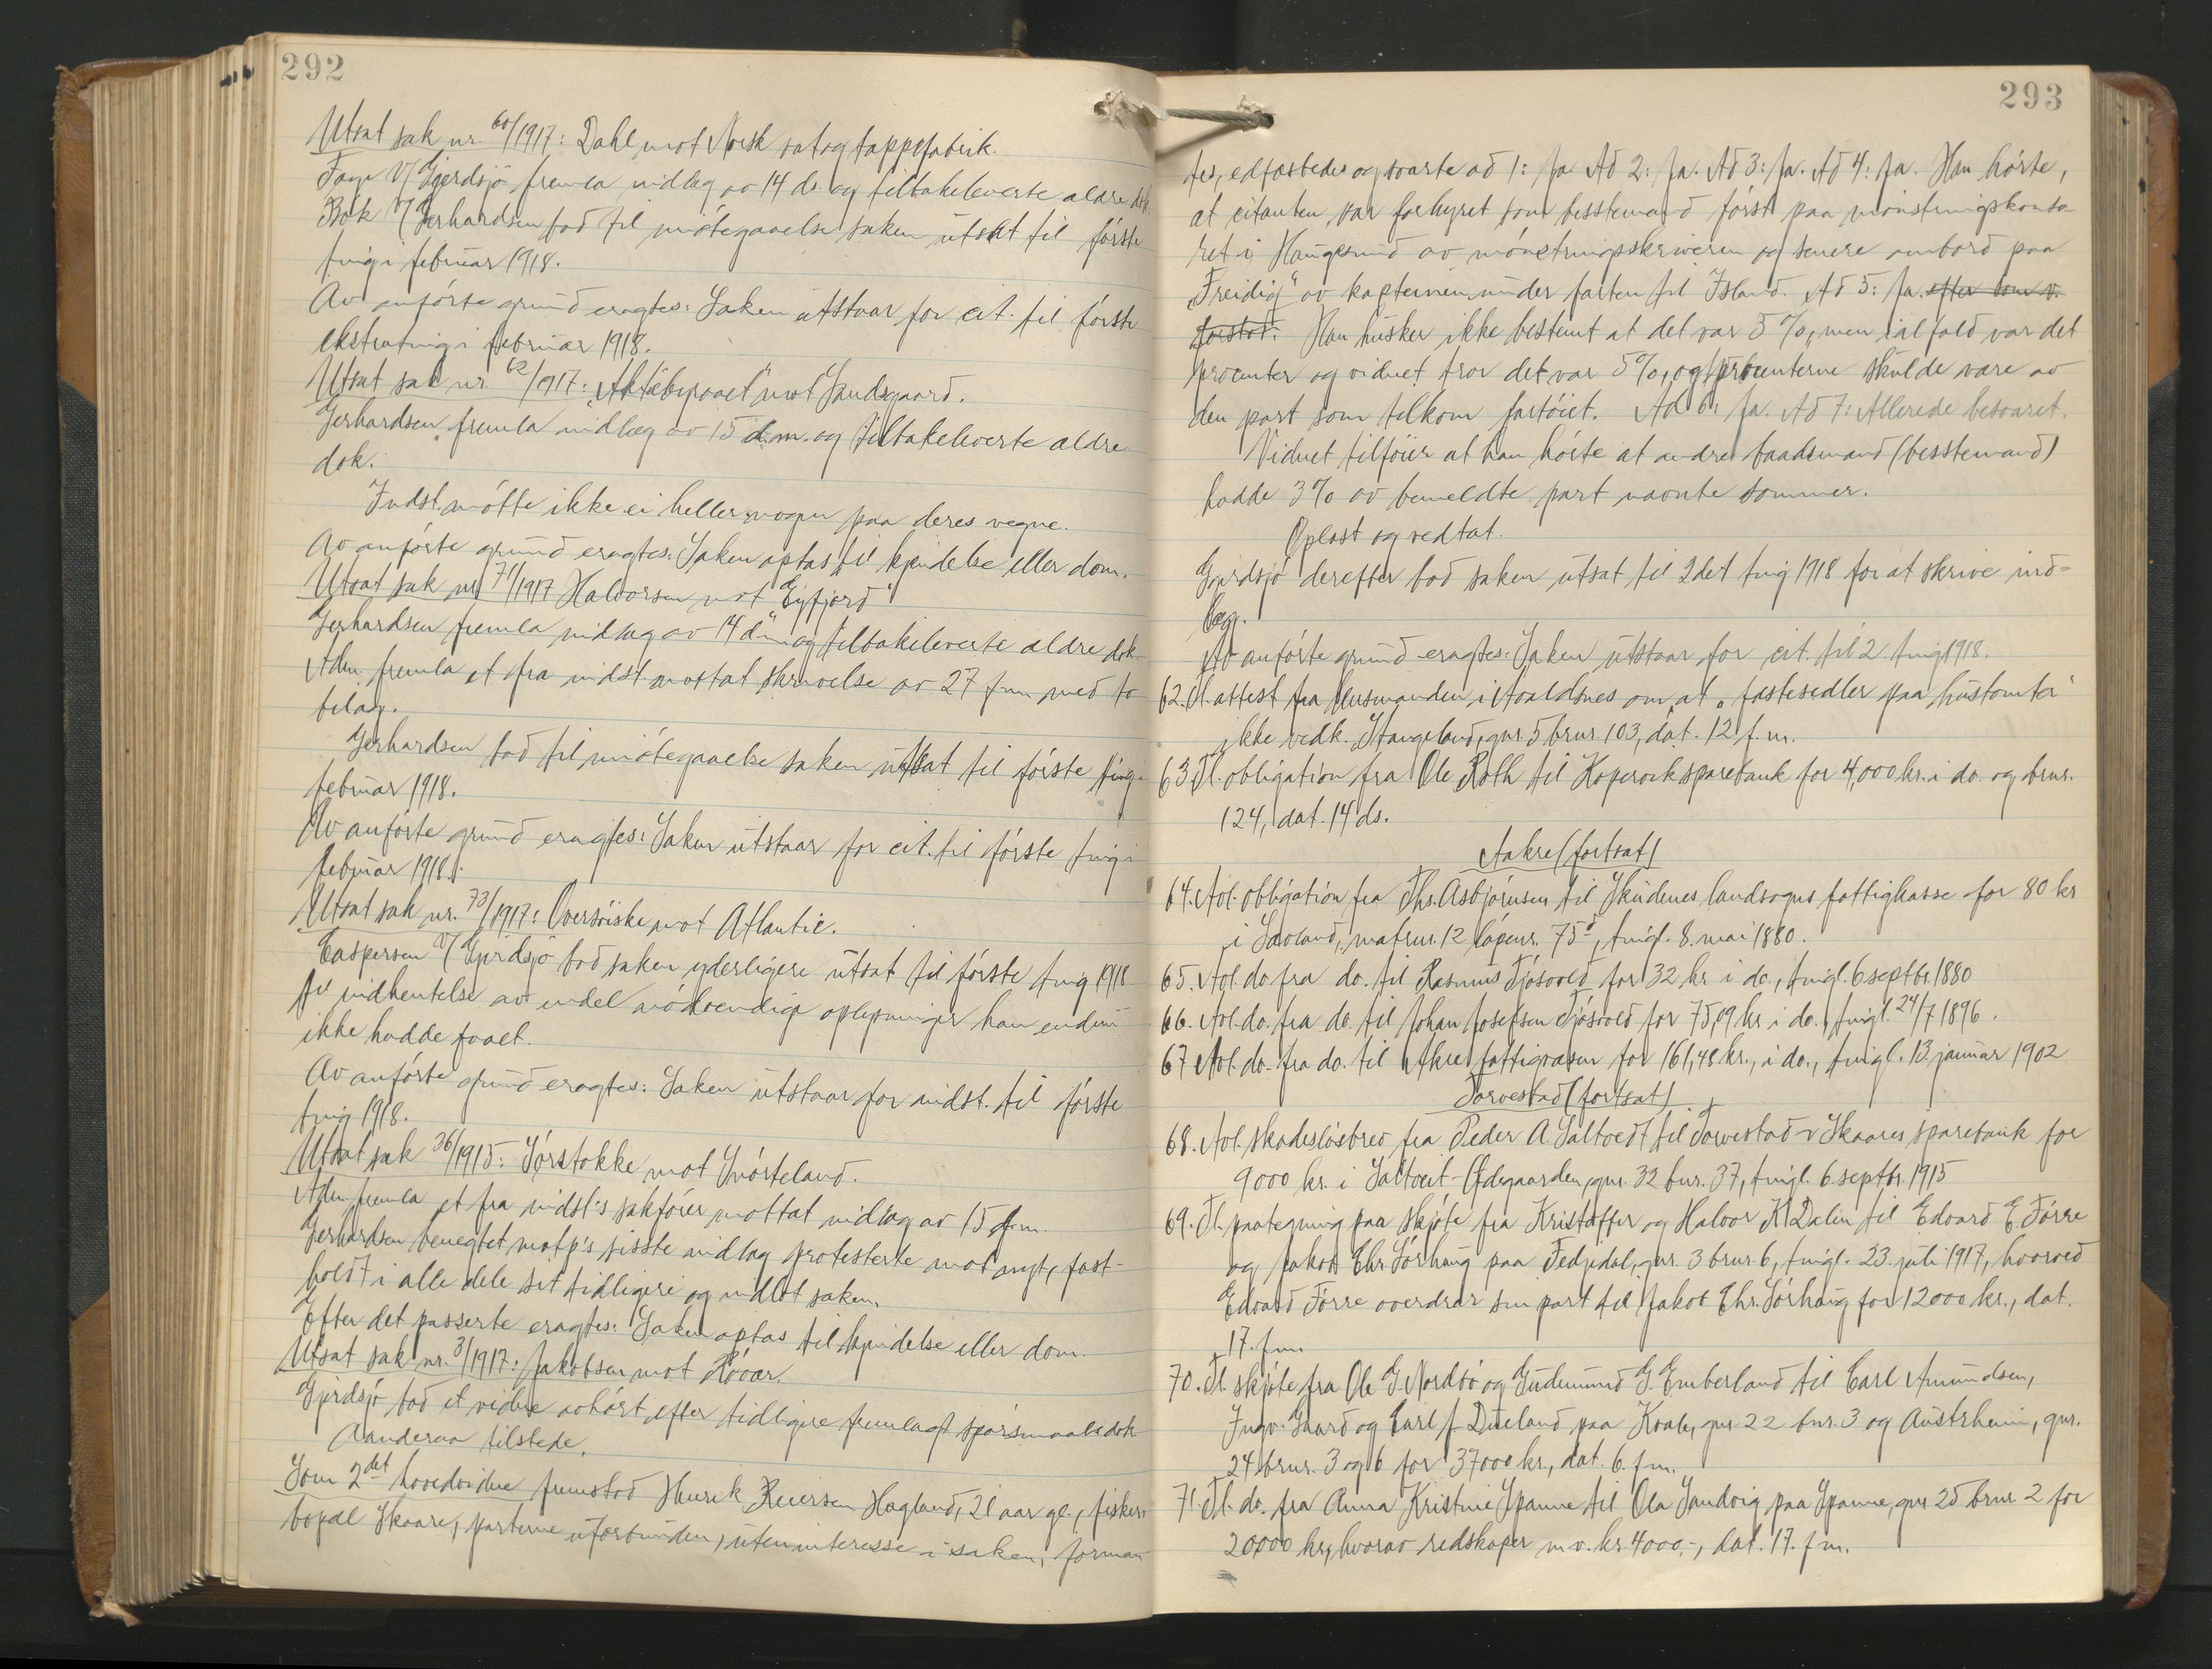 292
Utsat sak nr. 60/1917: Dahl mot Norsk vat og tappefabrik.
V/ Gjerdsjö fremla indlæg av 14 ds. og tilbakeleverte ældre dok.
V/ Gerhardsen bad til imötegaaelse saken utsat til förste
ting i februar 1918.
Av anförte grund eragtes: Saken utstaar for cit. til förste
ekstrating i februar 1918.
Utsat sak nr. 62/1917: mot Sandsgaard.
Gerhardsen fremla indlæg av 15 d.m. og tilbakeleverte ældre
dok.
Indst. mötte ikke ei heller nogen paa deres vegne.
Av anförte grund eragtes: Saken optas til kjendelse eller dom.
Utsat sak nr. 71/1917 Halvorsen mot "Eyfjord"
Gerhardsen fremla indlæg av 14 d.m. og tilbakeleverte ældre dok.
Adm. fremla et fra indst. mottat skrivelse av 27 f.m. med to
bilag.
Gerhardsen bad til imötegaaelse saken utsat til förste ting i
februar 1918.
Av anförte grund eragtes: Saken utstaar for cit. til förste ting i
februar 1918.
Utsat sak nr. 73/1917: Oversöiske mot Atlantic.
Caspersen V/ Gjerdsjö bad saken yderligere utsat til förste ting 1918
til indhentelse av endel nödvendige oplysninger han endnu
ikke hadde faaet.
Av anförte grund eragtes: Saken utstaar for indst. til förste
ting 1918.
Utsat sak 36/1915: Sörstokke mot Snörteland.
Adm. fremla et fra indst's sakförer mottat indlæg av 15 d.m.
Gerhardsen benegtet motp's sisste indlæg protesterte mot nyt, fast-
holdt i alle dele sit tidligere og indlot saken.
Efter det passerte eragtes: Saken optas til kjendelse eller dom.
Utsat sak nr. 3/1917: Jakobsen mot Rövær.
Gjerdsjö bad et vidne avhört efter tidligere fremlagt spörsmaalsdok.
Aanderaa tilstede.
Som 2det hovedvidne fremstod Henrik Reiersen Hagland, 21 aar gl., fisker,
bopæl Skaare, parterne uforbunden, uten interesse i saken, forman-
293
tes, edfæstedes og svarte ad 1: Ja. Ad 2: Ja. Ad 3: Ja. Ad 4: Ja. Han hörte,
at citanten var forhyret som besstemand först paa mönstringskonto-
ret i Haugesund av mönstringsskriveren og senere ombord paa
"Freidig" av kapteinen under farten til Island. Ad 5: Ja. efter som v.
forstod. Han husker ikke bestemt at det var 5 %, men ialfald var det
procenter og vidnet tror det var 5 %, og procenterne skulde være av
den part som tilkom fartöiet. Ad 6: Ja. Ad 7: Allerede besvaret.
Vidnet tilföier at han hörte at andre baadsmand (besstemand)
hadde 3 % av bemeldte part nævnte sommer.
Oplæst og vedtat.
Gjerdsjö derefter bad saken utsat til 2det ting 1918 for at skrive ind-
læg.
Av anförte grund eragtes: Saken utstaar for cit. til 2. ting 1918.
62. Tl. attest fra lensmanden i Avaldsnes om, at "fæstesedler paa hustomter"
ikke vedk. Stangeland, gnr. 5 brnr. 103, dat. 12 f.m.
63. Tl. obligation fra Ole Roth til Kopervik sparebank for 4,000 kr. i do. og brnr.
124, dat. 14 ds.
Aakre (fortsat)
64. Avl. obligation fra Ths. Asbjörnsen til Skudenes landsogns fattigkasse for 80 kr
i Sævland, matrnr. 12 löpenr. 75d, tingl. 8. mai 1880.
65. Avl. do. fra do. til Rasmus Tjösvold for 32 kr i do., tingl. 6 septbr. 1880
66. Avl. do. fra do. til Johan Josefsen Tjösvold for 75,09 kr. i do., tingl. 24/7 1896.
67 Avl. do. fra do. til Akre fattigvæsen for 161,48 kr., i do., tingl. 13 januar 1902
Torvestad (fortsat)
68. Avl. skadeslösbrev fra Peder A. Saltvedt til Torvestad & Skaares sparebank for
9000 kr. i Saltveit-Ödegaarden, gnr. 32 bnr. 37, tingl. 6. septbr. 1915
69. Tl. paategning paa skjöte fra Kristoffer og Halvor K. Dalen til Edvard E. Förre
og Jakob Chr. Sörhaug paa Fedjedal, gnr. 3 brnr. 6, tingl. 23. juli 1917, hvorved
Edvard Förre overdrar sin part til Jakob Chr. Sörhaug for 12000 kr., dat.
17. f.m.
70. Tl. skjöte fra Ole G. Nordbö og Gudmund G. Emberland til Carl Amundsen,
Ingv. Gaard og Carl J. Dueland paa Kvale, gnr 22 bnr. 3 og Austrheim, gnr.
24 brnr. 3 og 6 for 37000 kr., dat. 6. f.m.
71. Tl. do. fra Anna Kristine Spanne til Ola Sandvig paa Spanne, gnr 25 brnr. 2 for
20000 kr., hvorav redskaper m.v. kr. 4000,-, dat. 17. f.m.